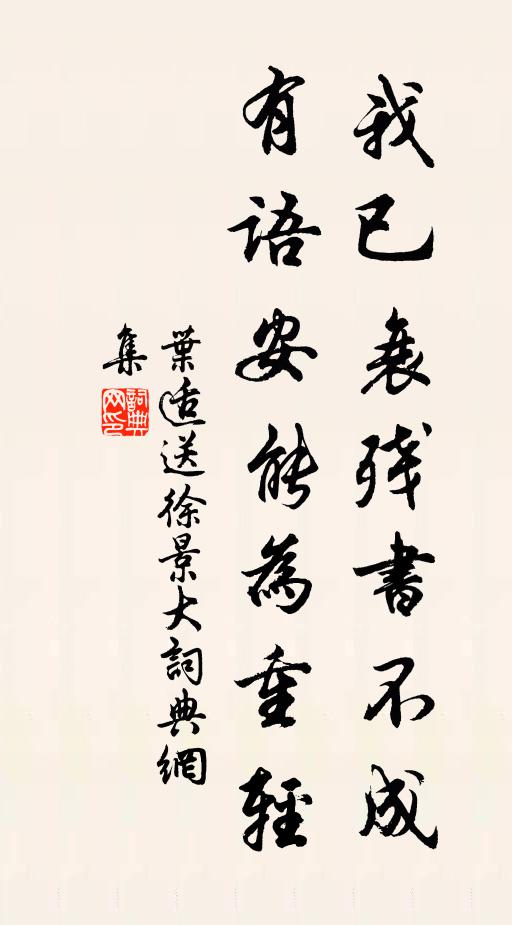 我已衰殘書不成
有語安能為重輕
葉適送徐景大詞典網
集
詞典网印